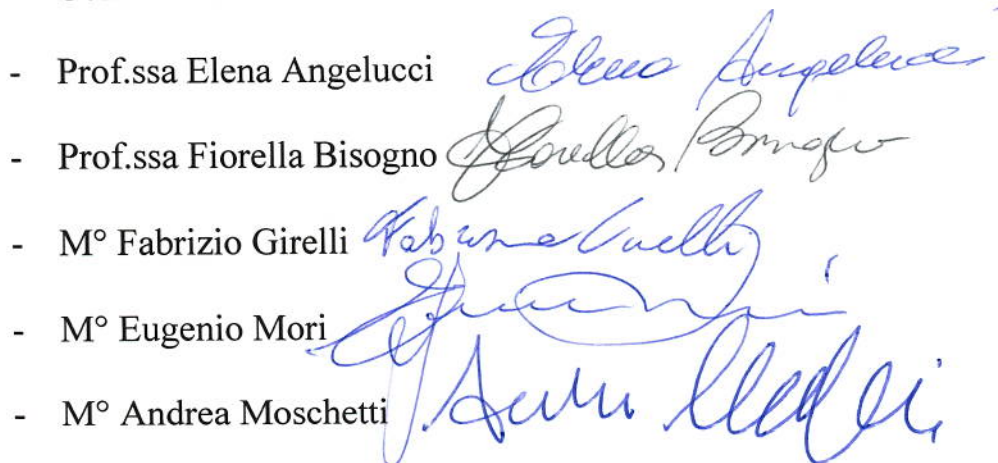 - Prof.ssa Elena Angelucci Elena Angelucci
- Prof.ssa Fiorella Bisogno Fiorella Bisogno
- M° Fabrizio Girelli Fabrizio Girelli
- M° Eugenio Mori
- M° Andrea Moschetti